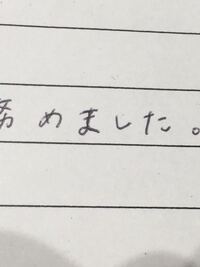 務めました。